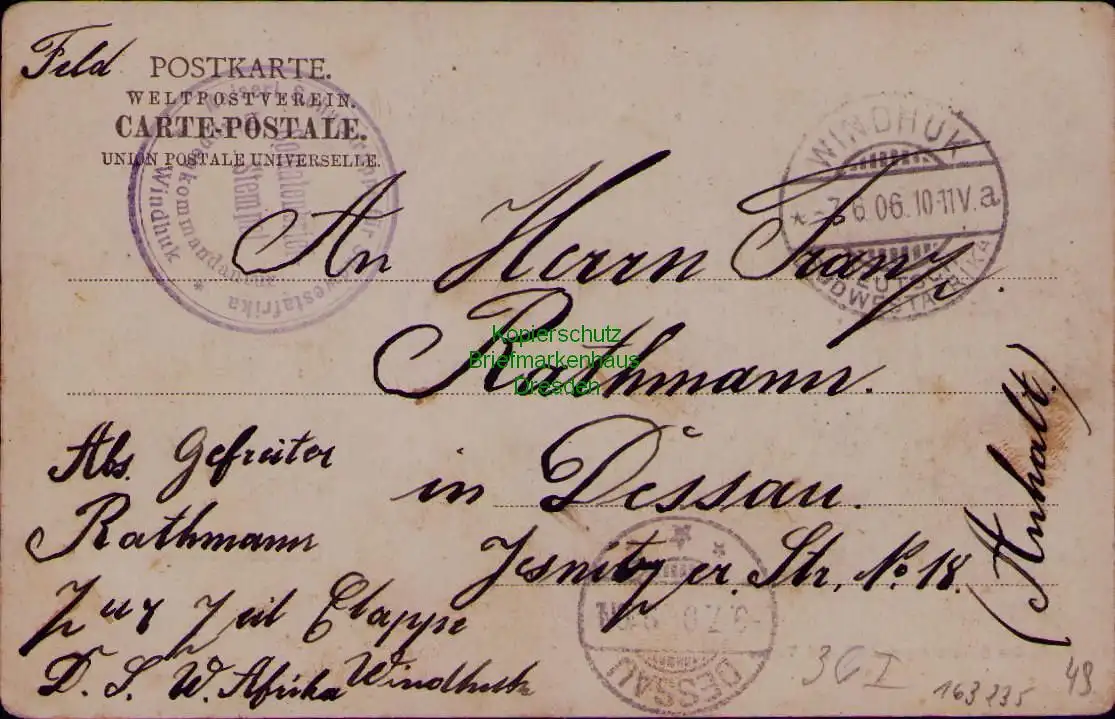 Feld POSTKARTE.
WELTPOSTVEREIN.
CARTE-POSTALE.
UNION POSTALE UNIVERSELLE.
Windhuk
WINDHUK
6.06.10-11V.a
DEUTSCH-
SÜDWESTAFRIKA
An Herrn Franz
Rathmann.
in Dessau.
Jesnitzer Str, No 18.
(Anhalt.)
Kopierschutz
Briefmarkenhaus
Dresden
Abs. Gefreiter
Rathmann
zur Zeit Etappe
D. S. W. Afrika Windhuk
DESSAU
36 I
163235
49